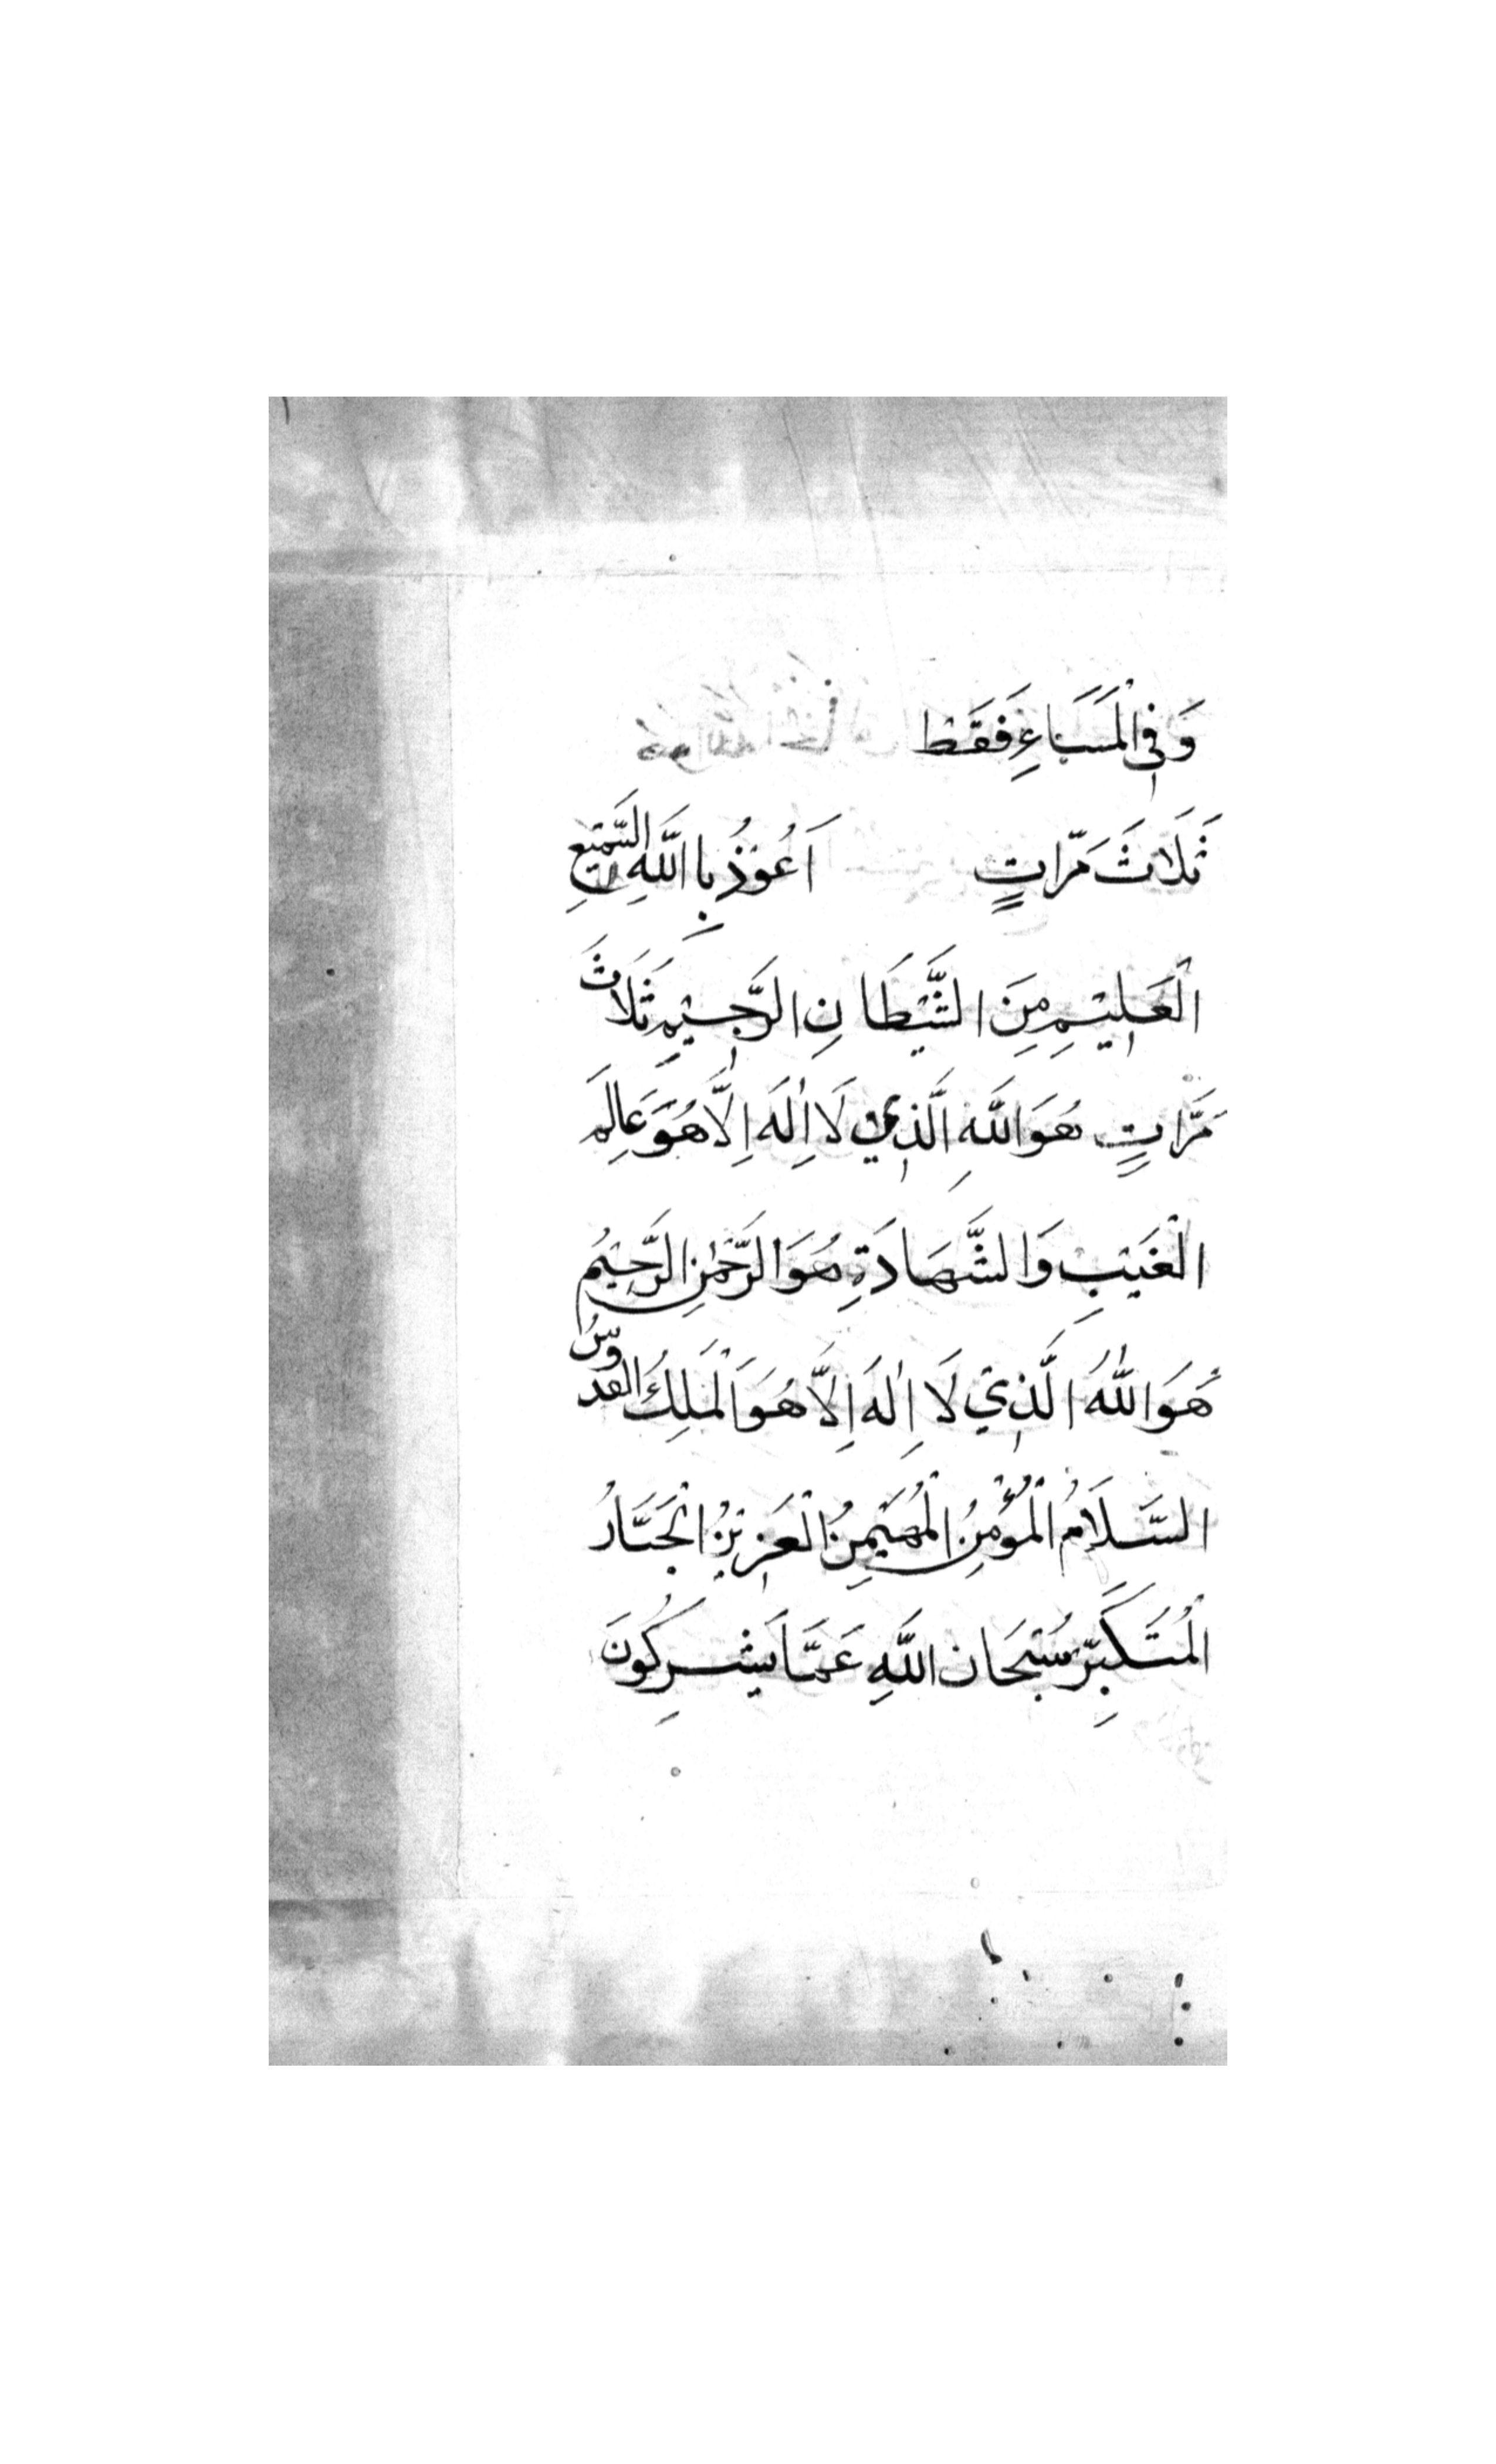 وَفِي الْمَسَاءِ فَقَطْ
ثَلَاثَ مَرَّاتٍ اَعُوْذُ بِااللَّهِ السَّمِيْعِ
الْعَلِيْمِ مِنَ الشَّيْطَانِ الرَّجِيْمِ ثَلَاثَ
مَرَّاتٍ هُوَ اللَّهِ الَّذِي لَا اِلٰهَ اِلَّا هُوَ عَالِمَ
الْغَيْبِ وَالشَّهَادَةِ هُوَ الرَّحْمٰنِ الرَّحِيْمُ
هُوَ اللّٰهُ الَّذِيْ لَا اِلٰهَ اِلَّا هُوَ اَلْمَلِكُ القُدُّوسُ
السَّلَامُ الْمُؤْمِنُ الْمُهَيْمِنُ الْعَزِيْزُ الْجَبَّارُ
الْمُتَكَبِّرُ سُبْحَانَ اللَّهِ عَمَّا يُشْرِكُونَ